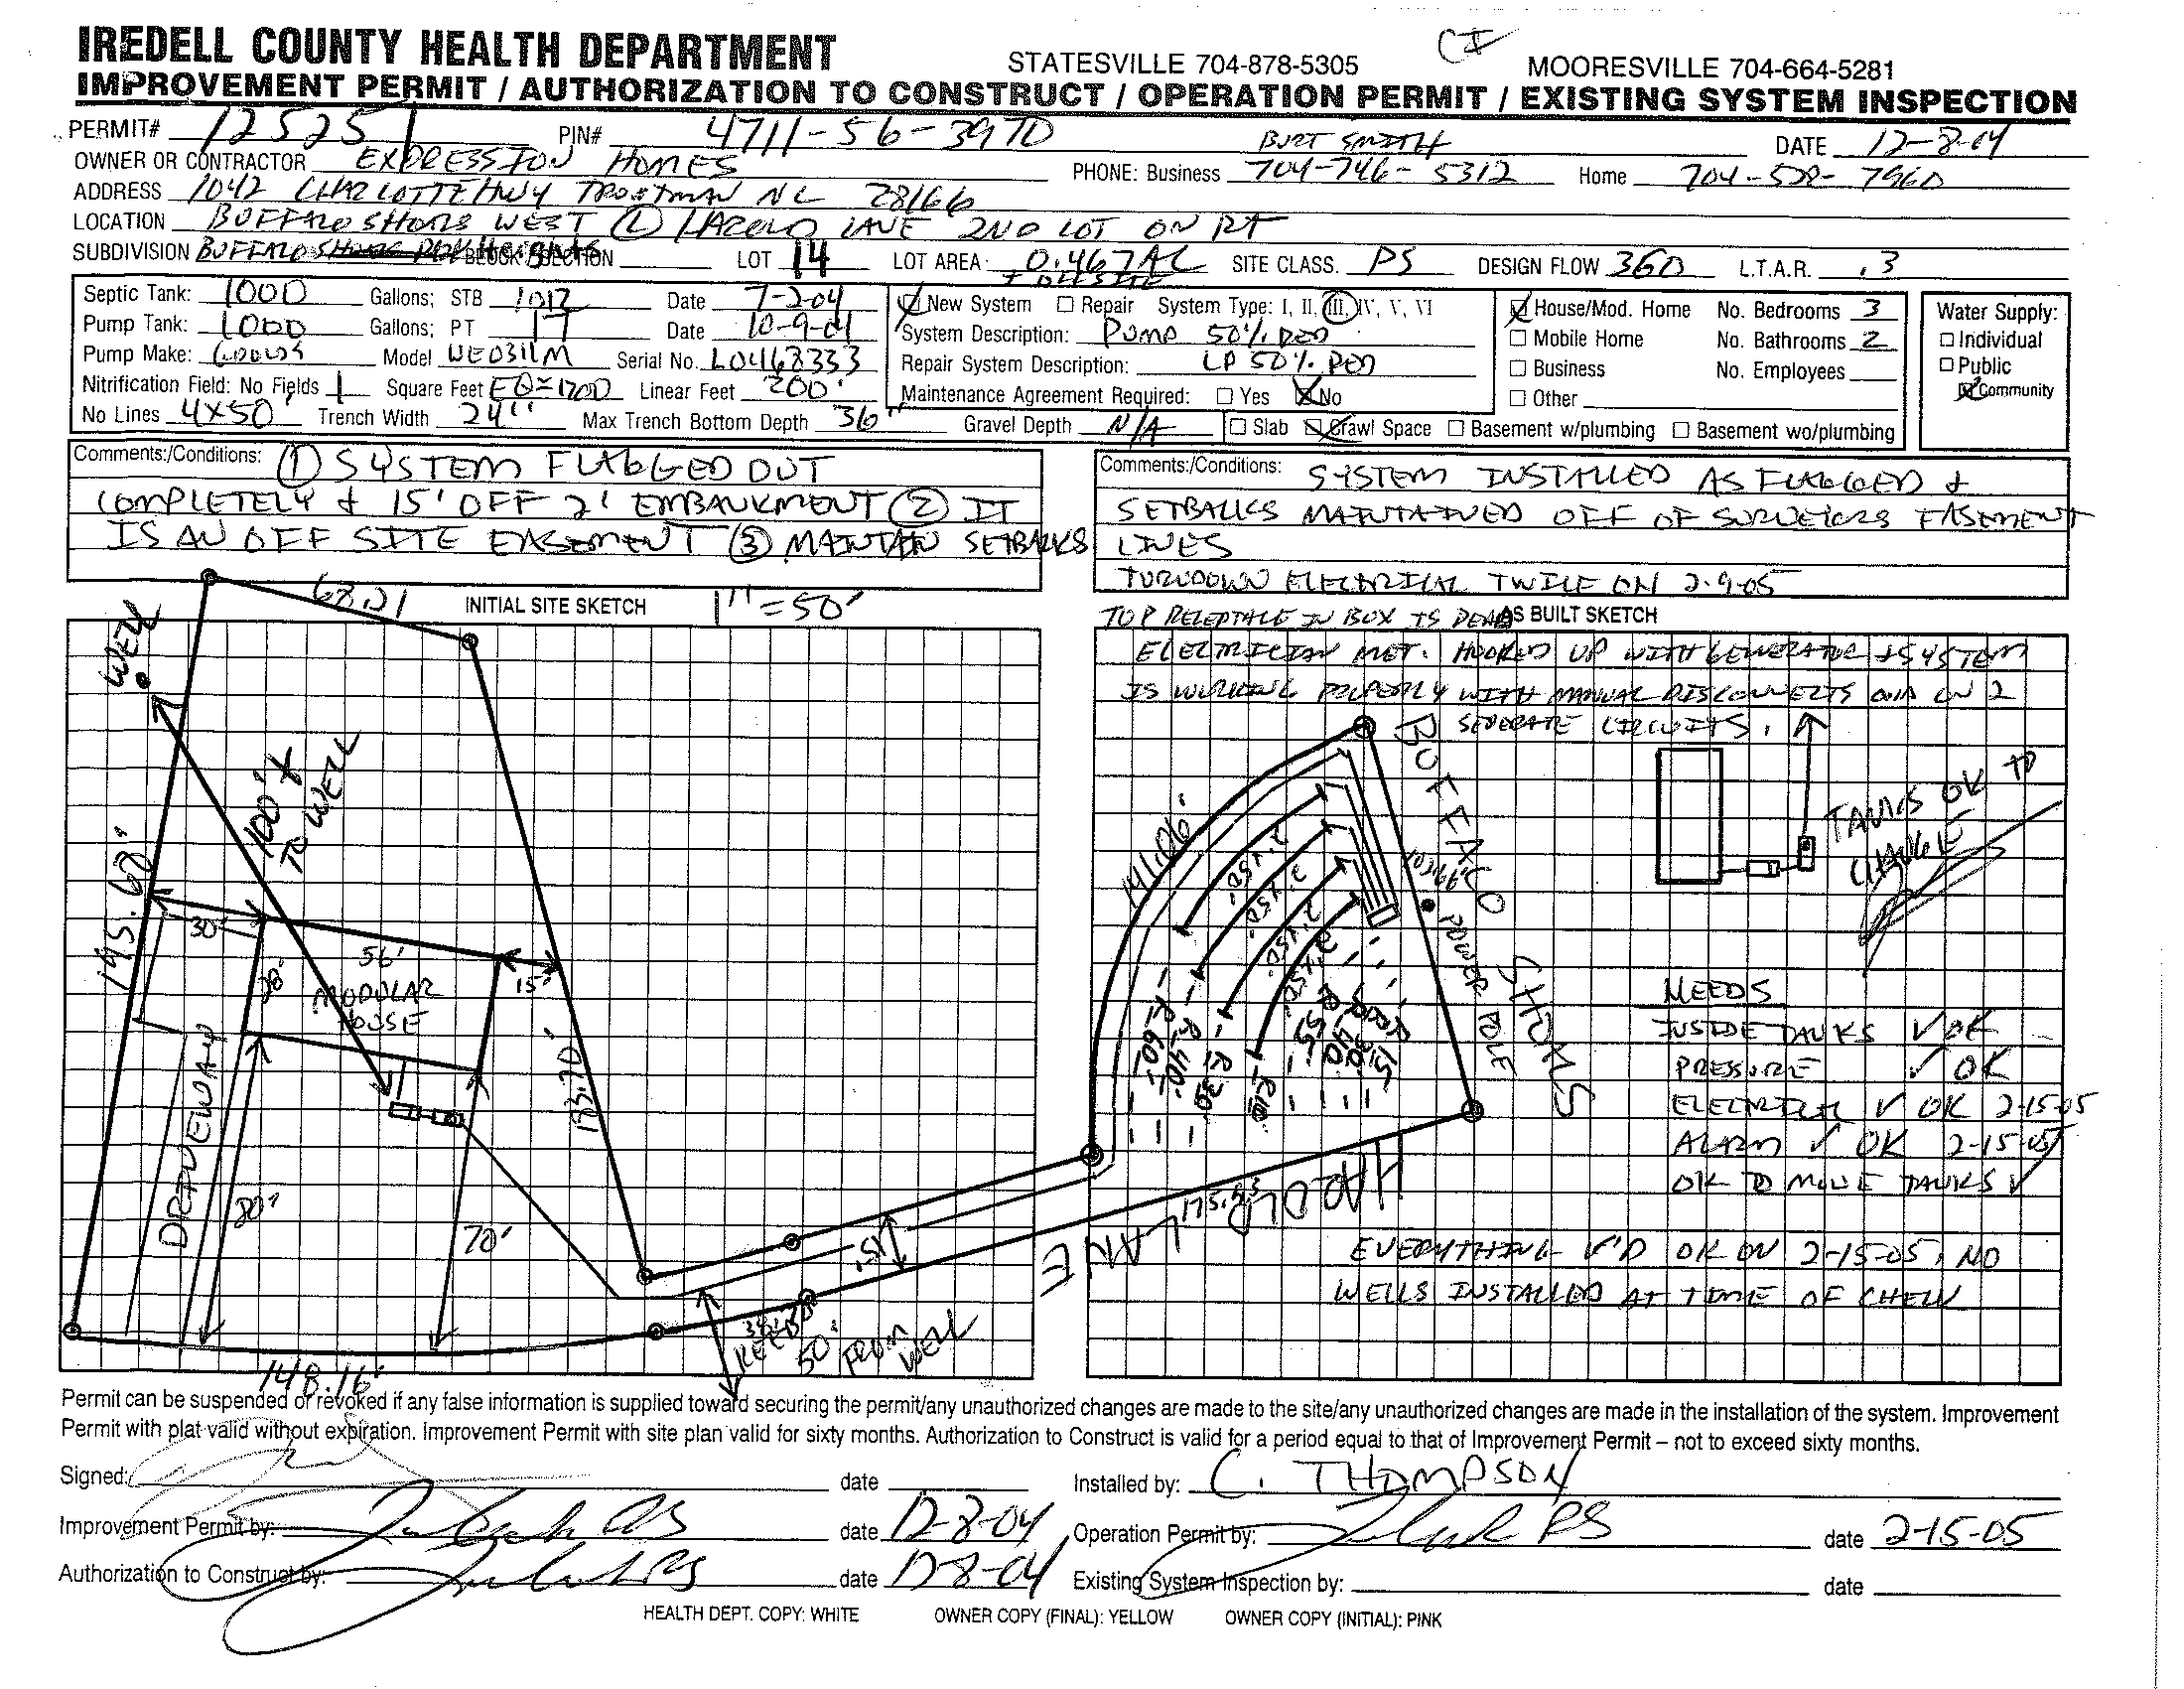 CI
IREDELL COUNTY HEALTH DEPARTMENT STATESVILLE 704-878-5305 MOORESVILLE 704-664-5281
IMPROVEMENT PERMIT / AUTHORIZATION TO CONSTRUCT / OPERATION PERMIT / EXISTING SYSTEM INSPECTION
PERMIT# 12525 PIN# 4711-56-3970 BURT SMITH DATE 12-8-04
OWNER OR CONTRACTOR EXPRESSION HOMES PHONE: Business 704-746-5312 Home 704-528-7960
ADDRESS 1042 CHARLOTTE HWY TROUTMAN NC 28166
LOCATION BUFFALO SHORES WEST (L) HAROLD LANE 2ND LOT ON RT
SUBDIVISION BUFFALO Heights BLOCK/SECTION LOT 14 LOT AREA 0.467AC + OFFSITE SITE CLASS. PS DESIGN FLOW 360 L.T.A.R. .3
Septic Tank: 1000 Gallons; STB 1012 Date 7-2-04
Pump Tank: 1000 Gallons; PT 17 Date 10-9-04
Pump Make: GOULDS Model WE0311M Serial No. L0468333
Nitrification Field: No Fields 1 Square Feet EQ=1200 Linear Feet 200'
No Lines 4X50' Trench Width 24" Max Trench Bottom Depth 36" Gravel Depth N/A
New System Repair System Type: I, II, III, IV, V, VI
System Description: PUMP 50% RED
Repair System Description: LP 50% RED
Maintenance Agreement Required: Yes No
Slab Crawl Space Basement w/plumbing Basement wo/plumbing
House/Mod. Home No. Bedrooms 3
Mobile Home No. Bathrooms 2
Business No. Employees
Other
Water Supply:
Individual
Public
Community
Comments:/Conditions: (1) SYSTEM FLAGGED OUT
COMPLETELY + 15' OFF 2' EMBANKMENT (2) IT
IS AN OFF SITE EASEMENT (3) MAINTAIN SETBACKS
Comments:/Conditions: SYSTEM INSTALLED AS FLAGGED +
SETBACKS MAINTAINED OFF OF SURVEYORS EASEMENT
LINES
TURNDOWN ELECTRICAL TWICE ON 2-9-05
TOP RECEPTACLE IN BOX IS DEAD
AS BUILT SKETCH
ELECTRICIAN MET. HOOKED UP WITH GENERATOR + SYSTEM
IS WORKING PROPERLY WITH MANUAL DISCONNECTS AND ON 2
SEPERATE CIRCUITS.
INITIAL SITE SKETCH 1"=50'
68.21
WELL
100'+
TO WELL
195.60'
30'
56'
15'
28'
MODULAR
HOUSE
193.70'
DRIVEWAY
80'
70'
148.16'
15'
KEEP
50'
FROM
WELL
141.06'
2'X50'
2'X50'
2'X50'
2'X50'
BUFFALO SHOALS
POWER POLE
R-60'
R-40'
R-30'
R-10'
R 55'
R 40'
R 30'
R 15
175.53
HAROLD LANE
TANKS OK TO
CHANGE
NEEDS
INSIDE TANKS ✓ OK
PRESSURE ✓ OK
ELECTRICAL ✓ OK 2-15-05
ALARM ✓ OK 2-15-05
OK TO MOVE TANKS ✓
EVERYTHING ✓'D OK ON 2-15-05, NO
WELLS INSTALLED AT TIME OF CHECK
Permit can be suspended or revoked if any false information is supplied toward securing the permit/any unauthorized changes are made to the site/any unauthorized changes are made in the installation of the system. Improvement
Permit with plat valid without expiration. Improvement Permit with site plan valid for sixty months. Authorization to Construct is valid for a period equal to that of Improvement Permit – not to exceed sixty months.
Signed: date Installed by: C. THOMPSON
Improvement Permit by: RS date 12-8-04 Operation Permit by: RS date 2-15-05
Authorization to Construct by: RS date 12-8-04 Existing System Inspection by: date
HEALTH DEPT. COPY: WHITE OWNER COPY (FINAL): YELLOW OWNER COPY (INITIAL): PINK